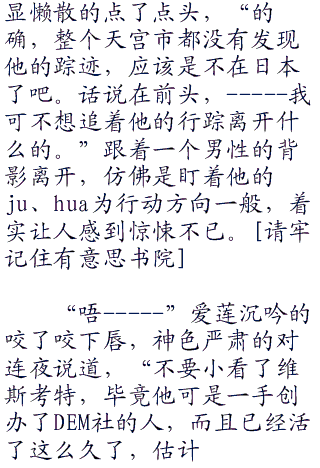 显懒散的点了点头，“的
确，整个天宫市都没有发现
他的踪迹，应该是不在日本
了吧。话说在前头，-----我
可不想追着他的行踪离开什
么的。”跟着一个男性的背
影离开，仿佛是盯着他的
ju、hua为行动方向一般，着
实让人感到惊悚不已。[请牢
记住有意思书院]
“唔-----”爱莲沉吟的
咬了咬下唇，神色严肃的对
连夜说道，“不要小看了维
斯考特，毕竟他可是一手创
办了DEM社的人，而且已经活
了这么久了，估计